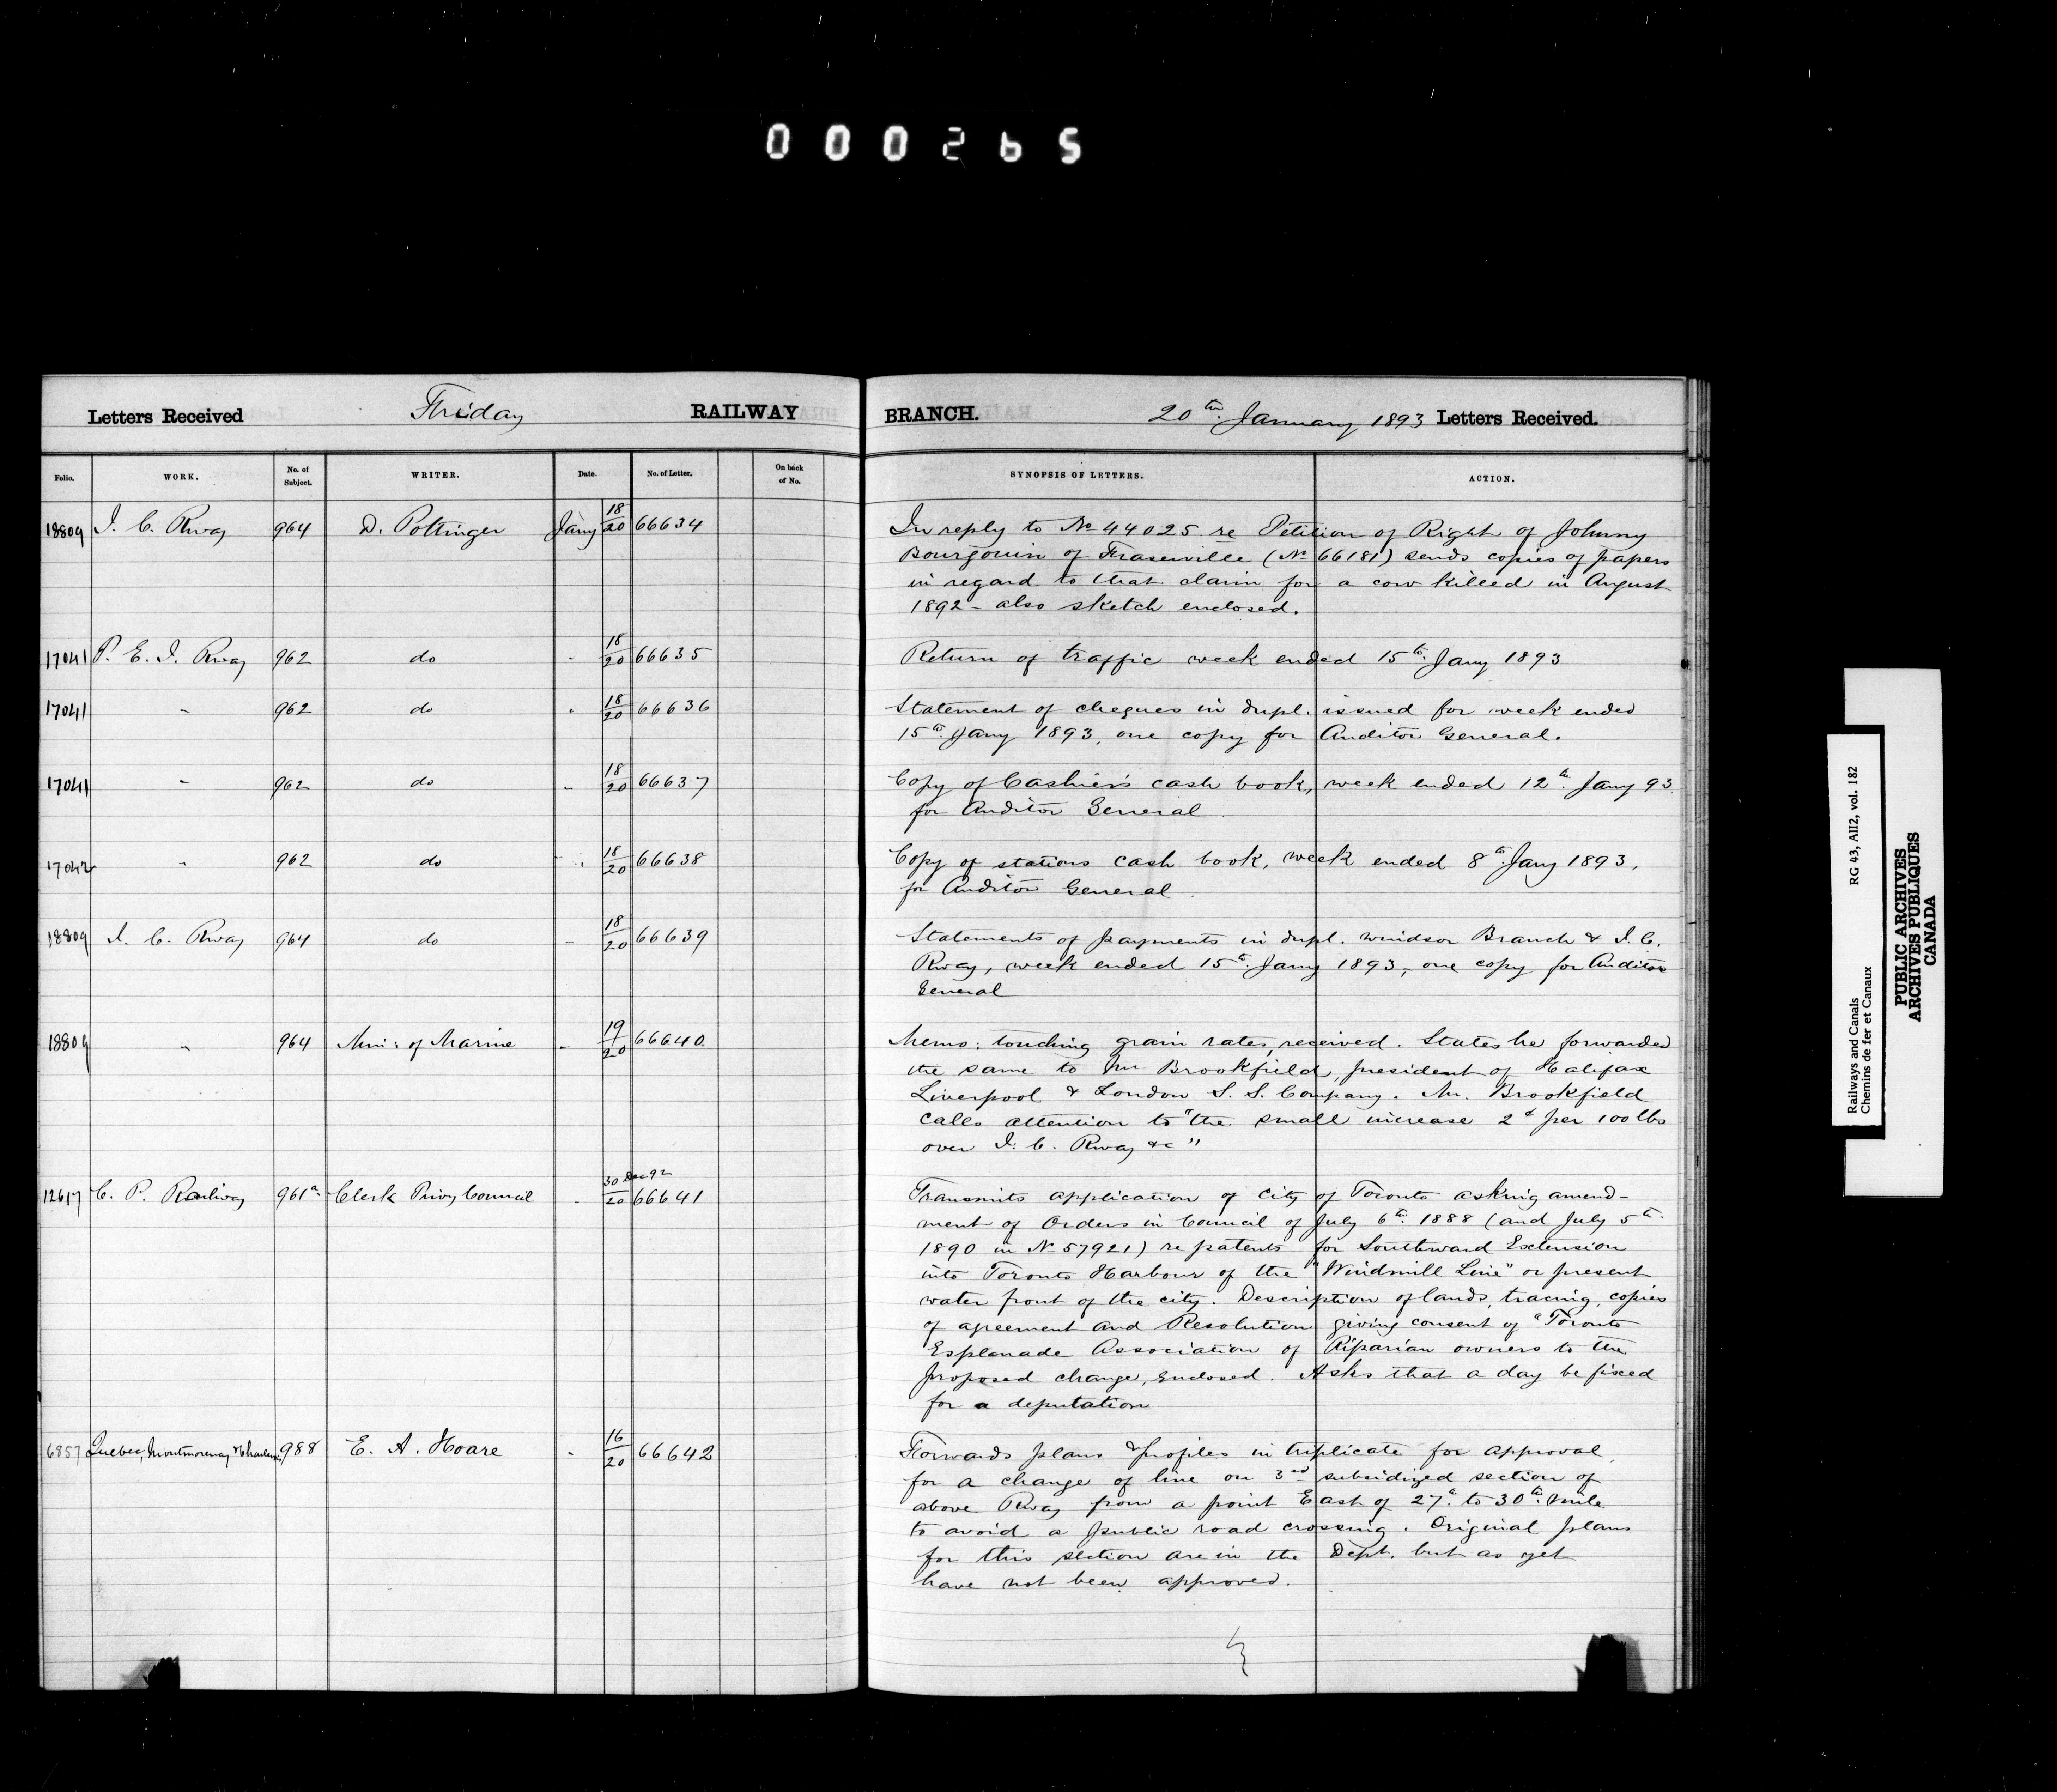 000265
Letters Received Friday RAILWAY BRANCH. 20th January 1893 Letters Received.
Folio. WORK. No. of Subject. WRITER. Date. No. of Letter. On back of No. SYNOPSIS OF LETTERS. ACTION.
18809 I. C. Rway 964 D. Pottinger Jany 18/20 66634 In reply to No 44025 re Petition of Right of Johnny
Bourgouin of Fraserville (No 66181) sends copies of papers
in regard to that claim for a cow killed in August
1892 - also sketch enclosed.
17041 P. E. I. Rway 962 do " 18/20 66635 Return of traffic week ended 15th Jany 1893
17041 " 962 do " 18/20 66636 Statement of cheques in dupl. issued for week ended
15th Jany 1893, one copy for Auditor General.
17041 " 962 do " 18/20 66637 Copy of Cashier's cash book, week ended 12th Jany 93
for Auditor General.
17042 " 962 do " 18/20 66638 Copy of stations cash book, week ended 8th Jany 1893,
for Auditor General.
18809 I. C. Rway 964 do " 18/20 66639 Statements of payments in dupl. Windsor Branch & I. C.
Rway, week ended 15th Jany 1893, one copy for Auditor
General
18809 " 964 Min: of Marine " 19/20 66640 Memo: touching grain rates, received. States he forwarded
the same to Mr Brookfield, president of Halifax
Liverpool & London S. S. Company. Mr. Brookfield
calls attention to "the small increase 2d per 100 lbs
over I. C. Rway &c"
12617 C. P. Railway 961a Clerk Privy Council " 30 Dec 92/20 66641 Transmits application of City of Toronto asking amend-
ment of Orders in Council of July 6th 1888 (and July 5th
1890 in No 57921) re patents for Southward Extension
into Toronto Harbour of the "Windmill Line" or present
water front of the city. Description of lands, tracing, copies
of agreement and Resolution giving consent of "Toronto
Esplanade Association of Riparian owners to the
proposed change, enclosed. Asks that a day be fixed
for a deputation
6857 Quebec, Montmorency & Charlevoix 988 E. A. Hoare " 16/20 66642 Forwards plans & profiles in triplicate for approval,
for a change of line on 3rd subsidized section of
above Rway from a point East of 27th to 30th mile
to avoid a public road crossing. Original plans
for this section are in the Dept. but as yet
have not been approved.
Railways and Canals RG 43, AII2, vol. 182
Chemins de fer et Canaux
PUBLIC ARCHIVES
ARCHIVES PUBLIQUES
CANADA